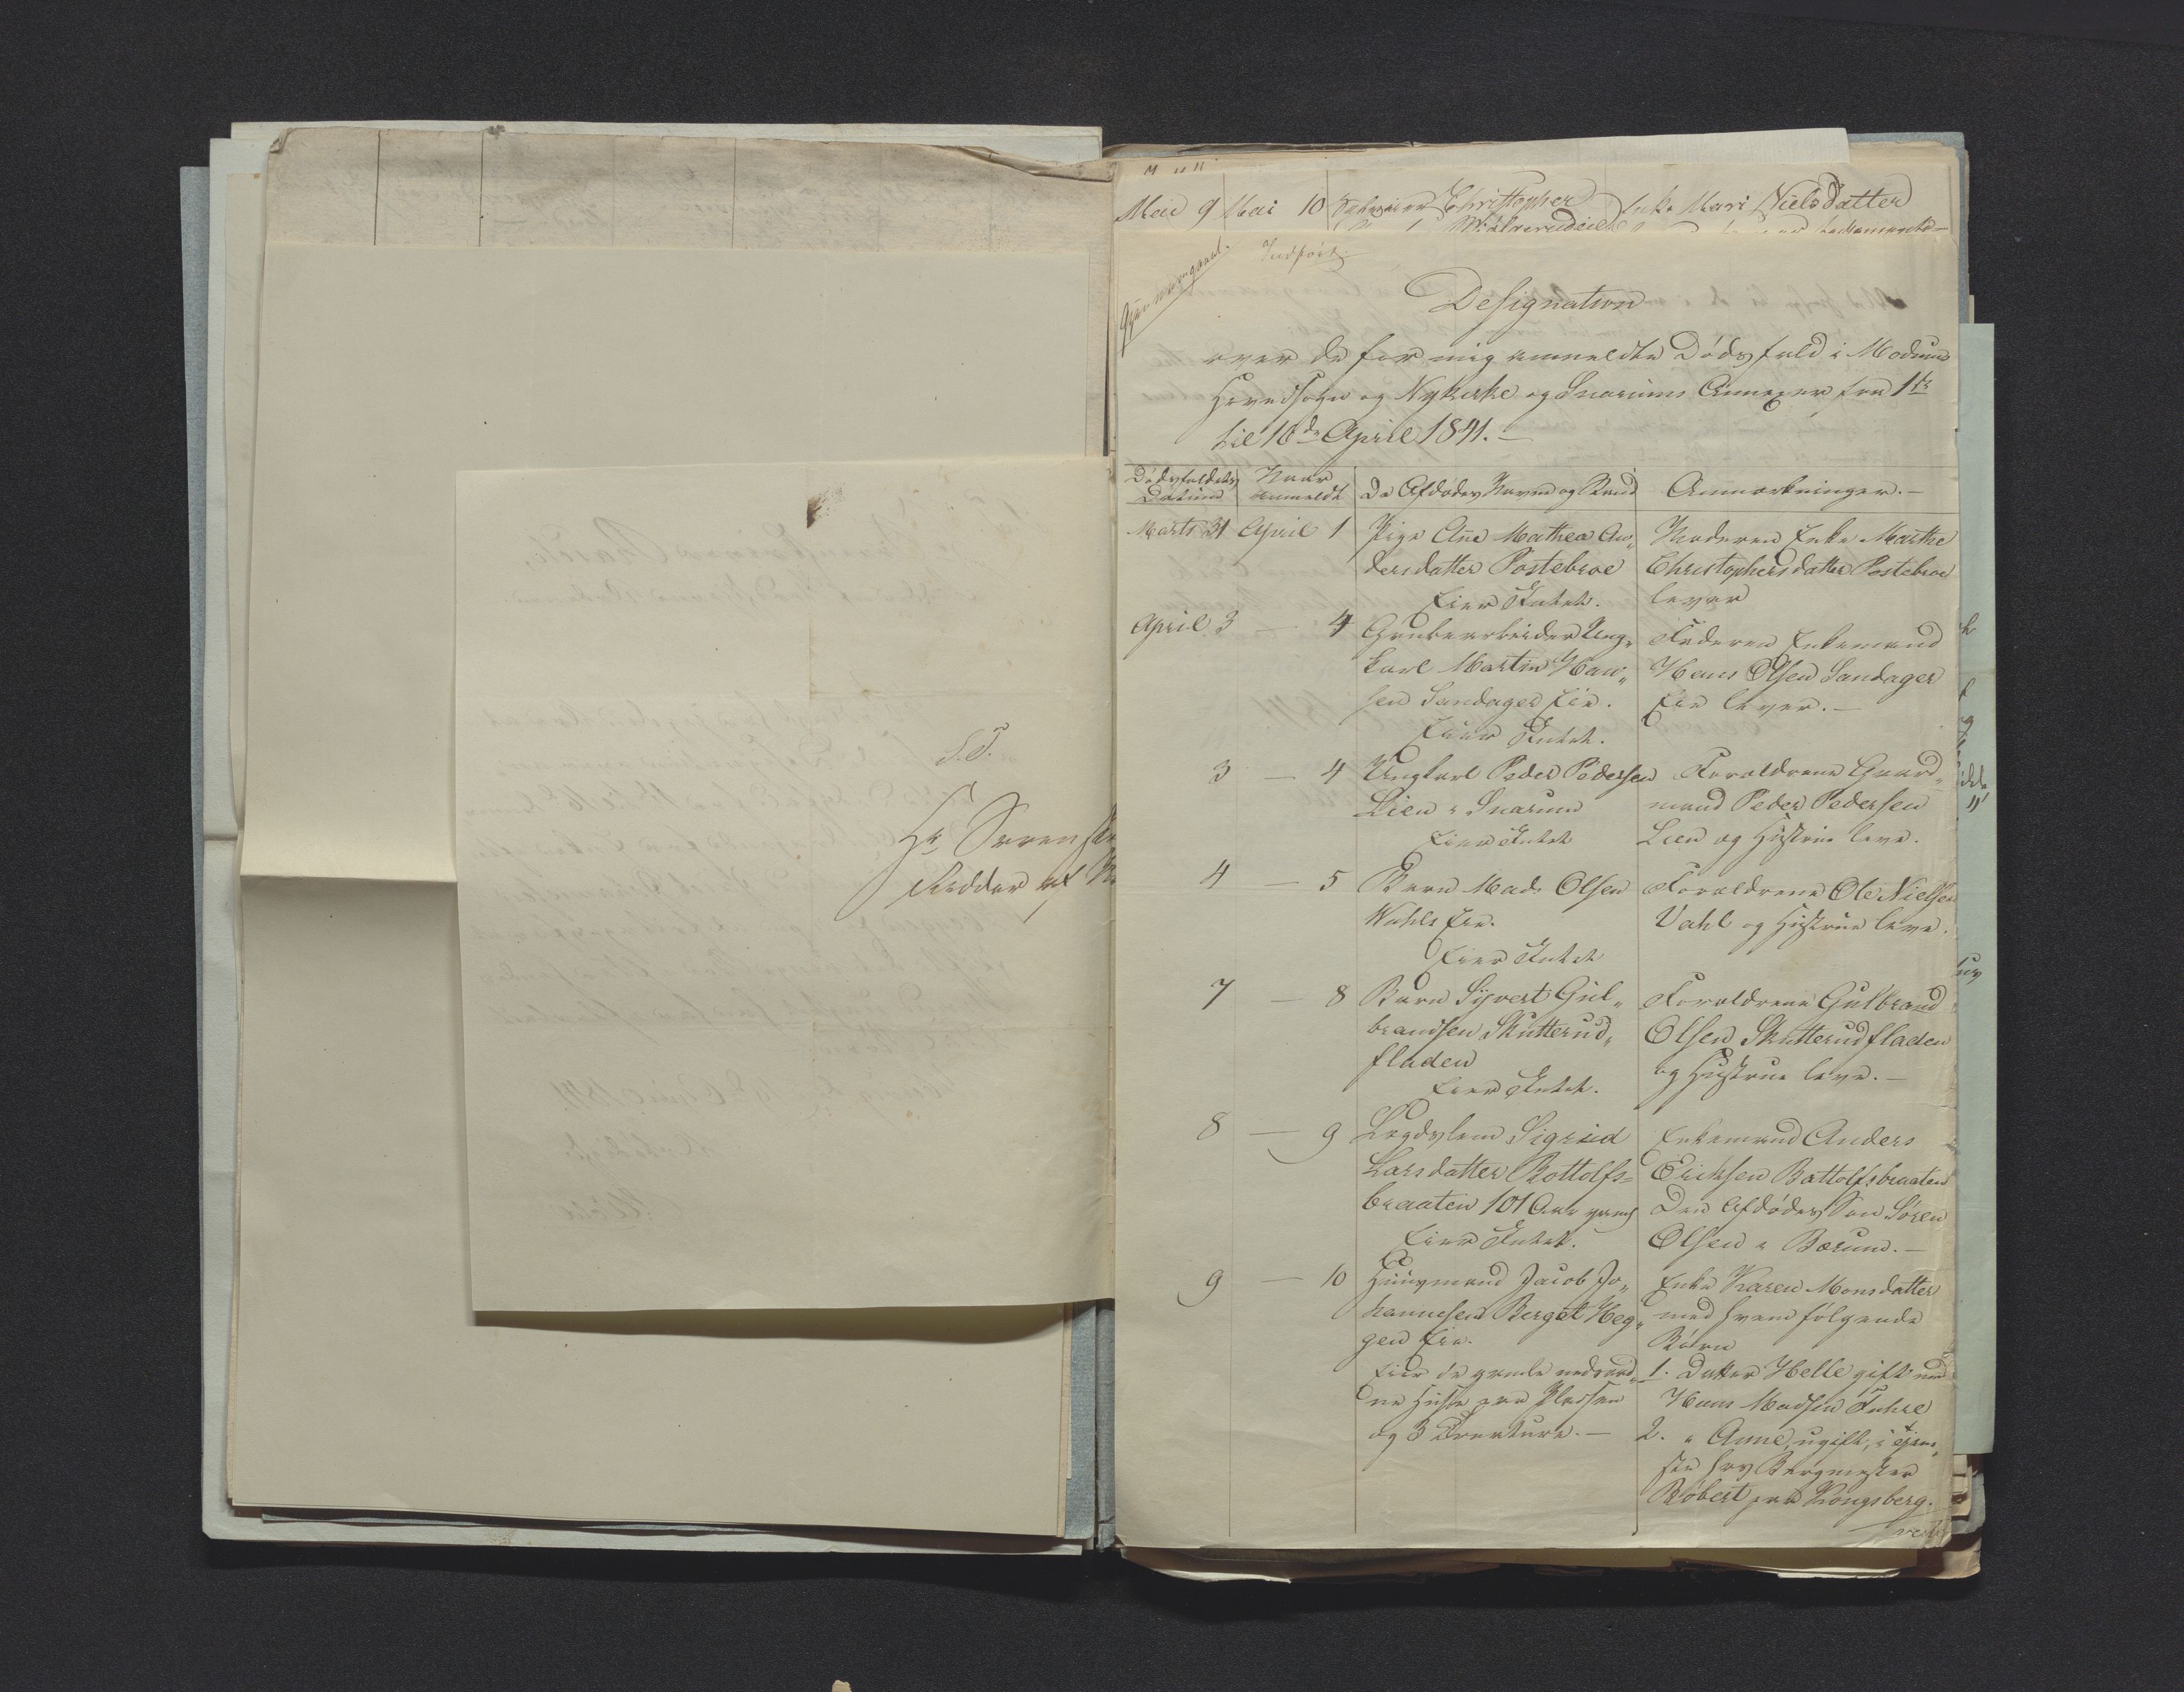 S. T.
Hr Sorenskr
Ridder af
Mai 9 Mai 10 Christopher Enke Mari Nielsdatter
Gjennemgaaet.
Indført.
Designation
over de for mig anmeldte Dødsfald i Modums
Hovedsogn og Nykirke og Snarums Annexer fra 1te
til 10de April 1841.—
Dødsfaldets Datum
Naar anmeldt
De Afdødes Navne og Stand
Anmærkninger.—
Marts 31 April 1 Pige Ane Mathea An„
dersdatter Postebroe
Eier Intet.
Moderen Enke Marthe
Christophersdatter Postebroe
lever
April 3 — 4 Grubearbeider Ung„
karl Martin Han„
sen Sandager Eie.
Eier Intet.
Faderen Enkemand
Hans Olsen Sandager
Eie lever.—
3 — 4 Ungkarl Peder Pedersen
Lien i Snarum
Eier Intet
Forældrene Gaard„
mand Peder Pedersen
Lien og Hustrue leve.
4 — 5 Barn Mads Olsen
Wahls Eie.
Eier Intet
Forældrene Ole Nielsen
Vahl og Hustrue leve.
7 — 8 Barn Syvert Gul„
brandsen Skutterud„
fladen
Eier Intet.
Forældrene Gulbrand
Olsen Skutterudfladen
og Hustrue leve.—
8 — 9 Lægdslem Sigrid
Larsdatter Bottolfs=
braaten 101 Aar gaml
Eier Intet.
Enkemand Anders
Erichsen Bottolfsbraaten
Den Afdødes Søn Søren
Olsen i Bærum.—
9 — 10 Huusmand Jacob Jo„
hannesen Berget Heg„
gen Eie.
Eier de gamle
Huse paa Pladsen
og 3 Creature.—
Enke Karen Monsdatter
med hvem følgende
Børn
1. Datter Helle gift med
Hans Madsen Fuhre
2. " Anne, ugift, i Tjene„
ste hos Bergmester
Bøbert paa Kongsberg.
vert